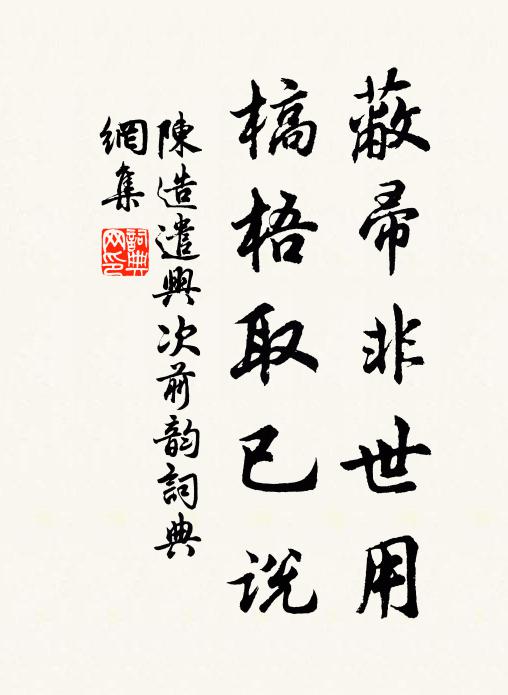 蔽帚非世用
槁梧取已説
陳造遣興次前韵詞典
網集
詞典
网印